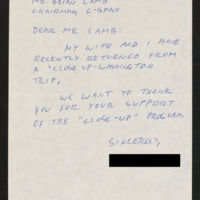 MR. BRIAN LAMB
CHAIRMAN, C-SPAN
DEAR MR. LAMB:
MY WIFE AND I HAVE
RECENTLY RETURNED FROM
A "CLOSE UP-WASHINGTON
TRIP.
WE WANT TO THANK
YOU FOR YOUR SUPPORT
OF THE "CLOSE-UP" PROGRAM.
SINCERELY,